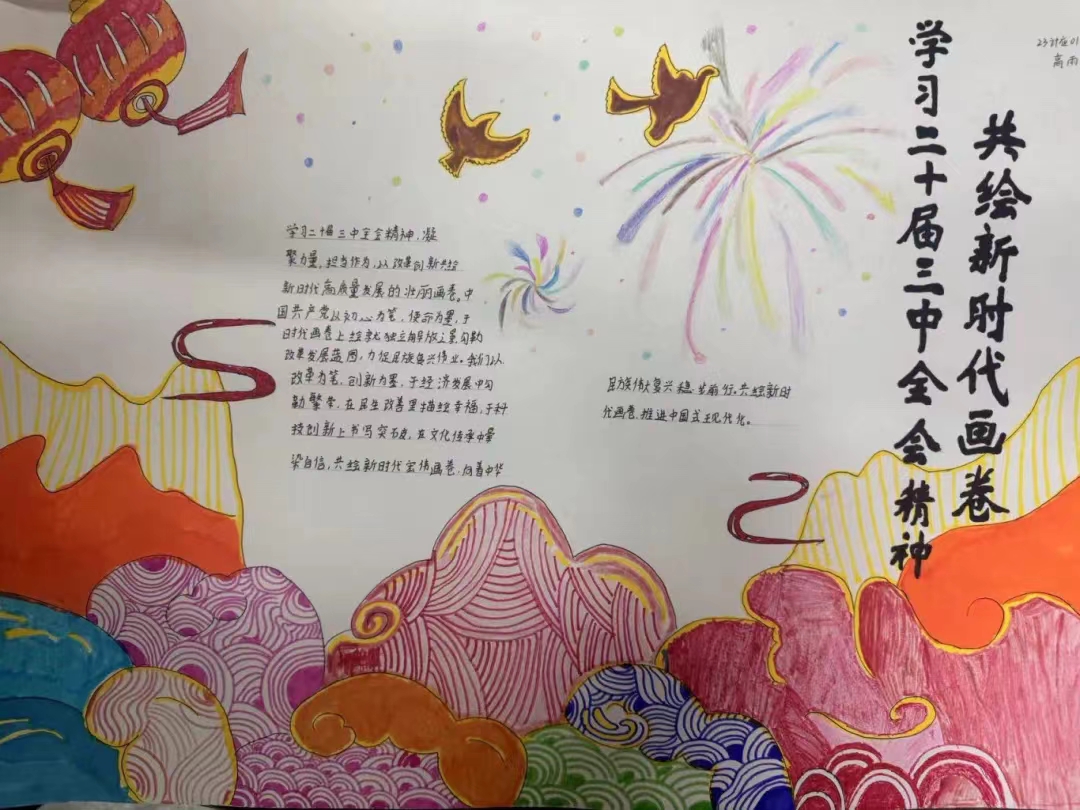 学习二十届三中全会精神
共绘新时代画卷
学习二十届三中全会精神,凝
聚力量,担当作为,以改革创新共绘
新时代高质量发展的壮丽画卷。中
国共产党以初心为笔,使命为墨,于
时代画卷上绘就独立解放之景,勾勒
改革发展蓝图,力促民族复兴伟业。我们以
改革为笔,创新为墨,于经济发展中勾
勒繁荣,在民生改善里描绘幸福,于科
技创新上书写突破,在文化传承中晕
染自信,共绘新时代宏伟画卷,向着中华
民族伟大复兴稳步前行。共绘新时
代画卷,推进中国式现代化。
高雨